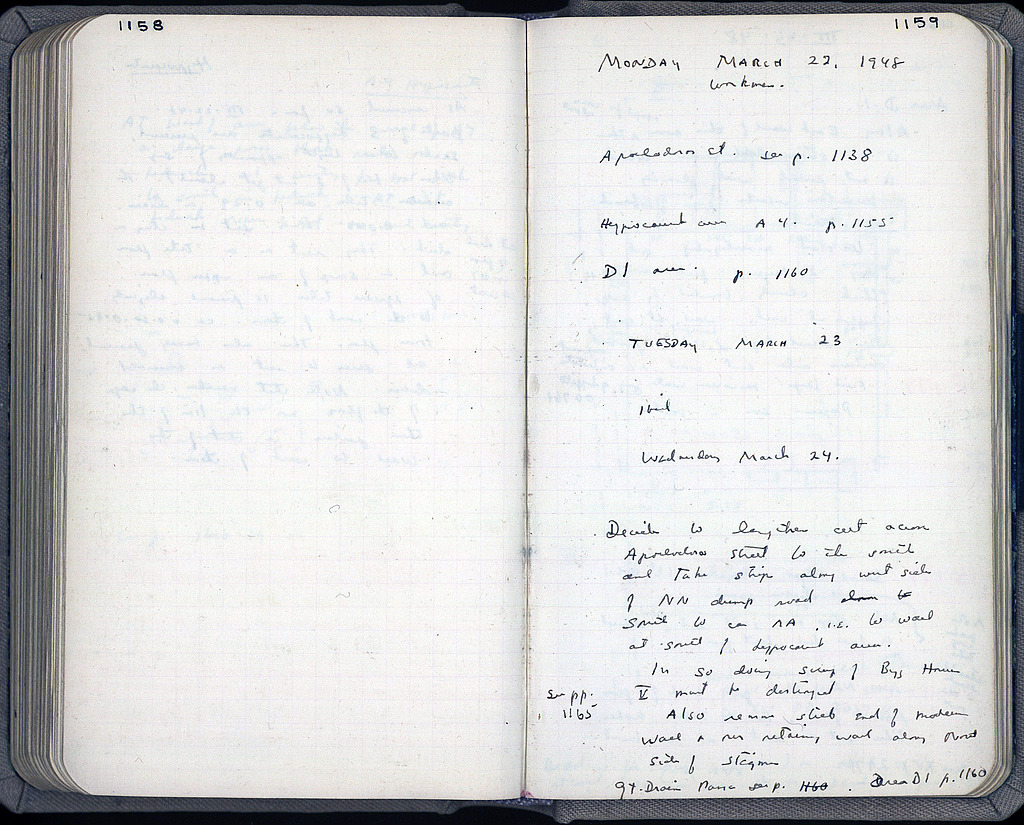 1158
1159
MONDAY MARCH 22, 1948
Workmen.
Apollodoros st. see p. 1138
Hypocaust area A 4. p. 1155
D1 area. p. 1160
TUESDAY MARCH 23
ibid
Wednesday March 24.
Decide to lengthen cut across
Apollodoros street to the south
and take strip along west side
of NN dump road
South to ca AA, i.e. to wall
at south of hypocaust area.
In so doing scrap of Byz House
V must be destroyed
See pp.
1165
Also remove south end of modern
wall & run retaining wall along North
side of
Gt. Drain see p. 1160. Area D1 p. 1160